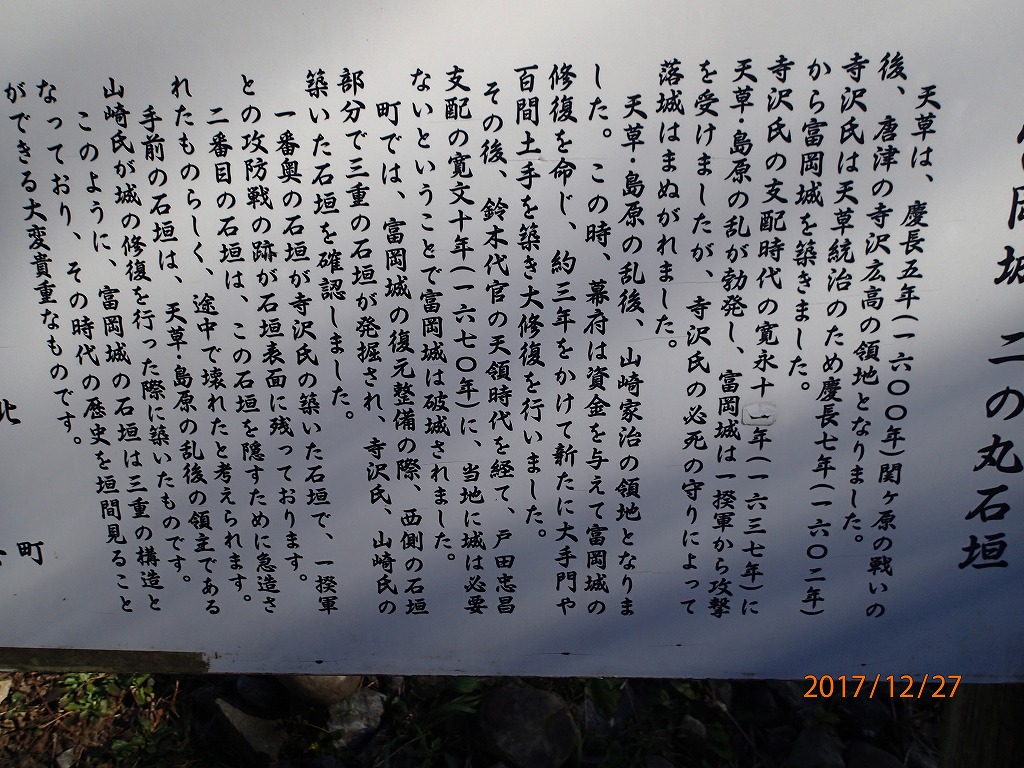 岡城 二の丸石垣
天草は、慶長五年(一六〇〇年)関ヶ原の戦いの
後、唐津の寺沢広高の領地となりました。
寺沢氏は天草統治のため慶長七年(一六〇二年)
から富岡城を築きました。
寺沢氏の支配時代の寛永十一年(一六三七年)に
天草・島原の乱が勃発し、富岡城は一揆軍から攻撃
を受けましたが、寺沢氏の必死の守りによって
落城はまぬがれました。
天草・島原の乱後、山崎家治の領地となりま
した。この時、幕府は資金を与えて富岡城の
修復を命じ、約三年をかけて新たに大手門や
百間土手を築き大修復を行いました。
その後、鈴木代官の天領時代を経て、戸田忠昌
支配の寛文十年(一六七〇年)に、当地に城は必要
ないということで富岡城は破城されました。
町では、富岡城の復元整備の際、西側の石垣
部分で三重の石垣が発掘され、寺沢氏、山崎氏の
築いた石垣を確認しました。
一番奥の石垣が寺沢氏の築いた石垣で、一揆軍
との攻防戦の跡が石垣表面に残っております。
二番目の石垣は、この石垣を隠すために急造さ
れたものらしく、途中で壊れたと考えられます。
手前の石垣は、天草・島原の乱後の領主である
山崎氏が城の修復を行った際に築いたものです。
このように、富岡城の石垣は三重の構造と
なっており、その時代の歴史を垣間見ること
ができる大変貴重なものです。
北
町
2017/12/27